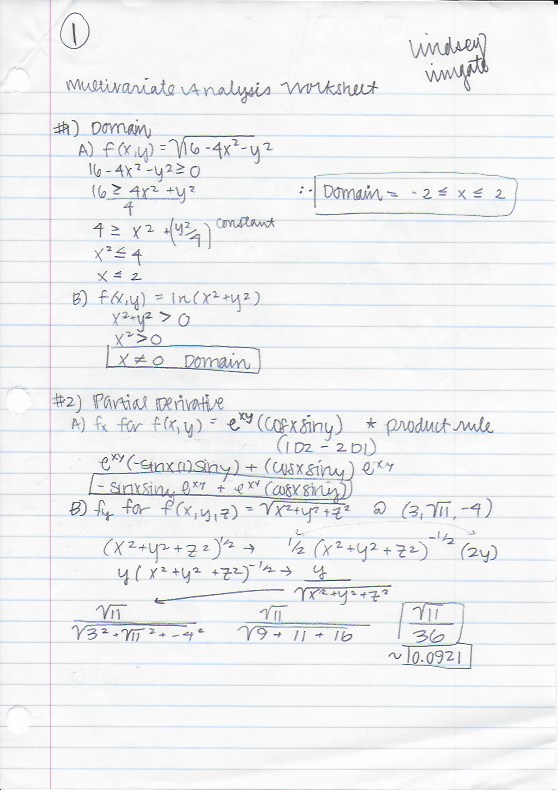 1
Lindsey
Wingate
Multivariate Analysis Worksheet
#1) Domain
A) f(x,y) = √16-4x²-y²
16-4x²-y² ≥ 0
16 ≥ 4x² + y²
4
4 ≥ x² + (y²/4) constant
x² ≤ 4
x ≤ 2
∴ Domain = -2 ≤ x ≤ 2
B) f(x,y) = ln(x²+y²)
x²+y² > 0
x² > 0
x ≠ 0 Domain
#2) Partial Derivative
A) fx for f(x,y) = e^xy (cosxsiny) * product rule
(1D2 - 2D1)
e^xy (-sinx(1)siny) + (cosxsiny) e^xy
-sinxsiny e^xy + e^xy (cosxsiny)
B) fy for f(x,y,z) = √x²+y²+z² @ (3,√11,-4)
(x²+y²+z²)^1/2 → 1/2 (x²+y²+z²)^-1/2 (2y)
y(x²+y²+z²)^-1/2 → y/√x²+y²+z²
√11/√3²+√11²+-4² √11/√9+11+16 √11/36
~ 0.0921